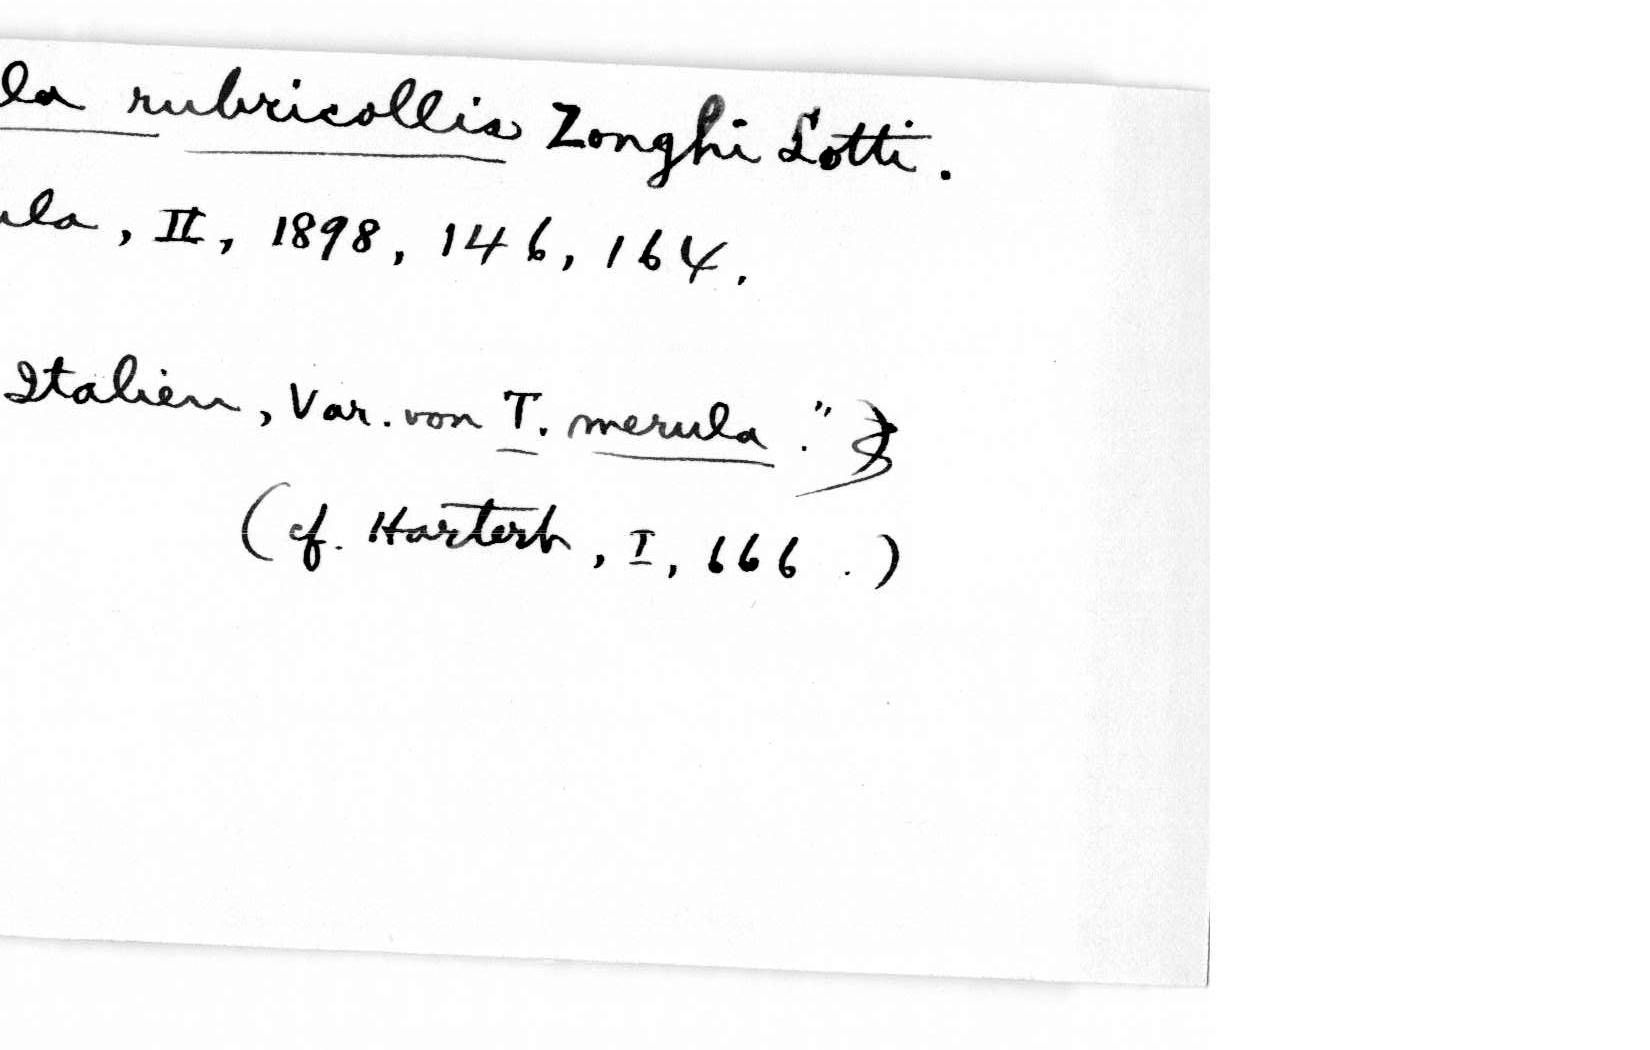 la rubricollis Zonghi Lotti.
ula, II, 1898, 146, 164.
Italien, Var. von T. merula."
(cf. Hartert, I, 666.)